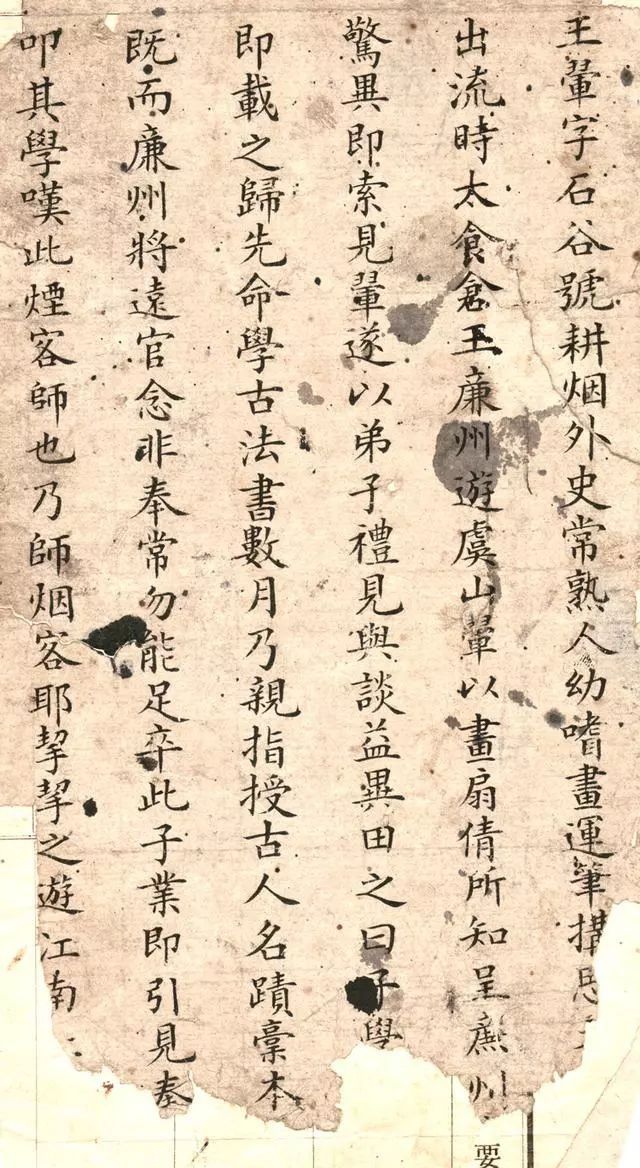 王翬字石谷號耕烟外史常熟人幼嗜畫運筆搆思
出流時太食倉王廉州遊虞山翬以畫扇倩所知呈廉州
驚異即索見翬遂以弟子禮見與談益異田之曰子學
即載之歸先命學古法書數月乃親指授古人名蹟稾本
既而廉州將遠官念非奉常勿能足卒此子業即引見奉
叩其學嘆此煙客師也乃師烟客耶挈挈之遊江南
要